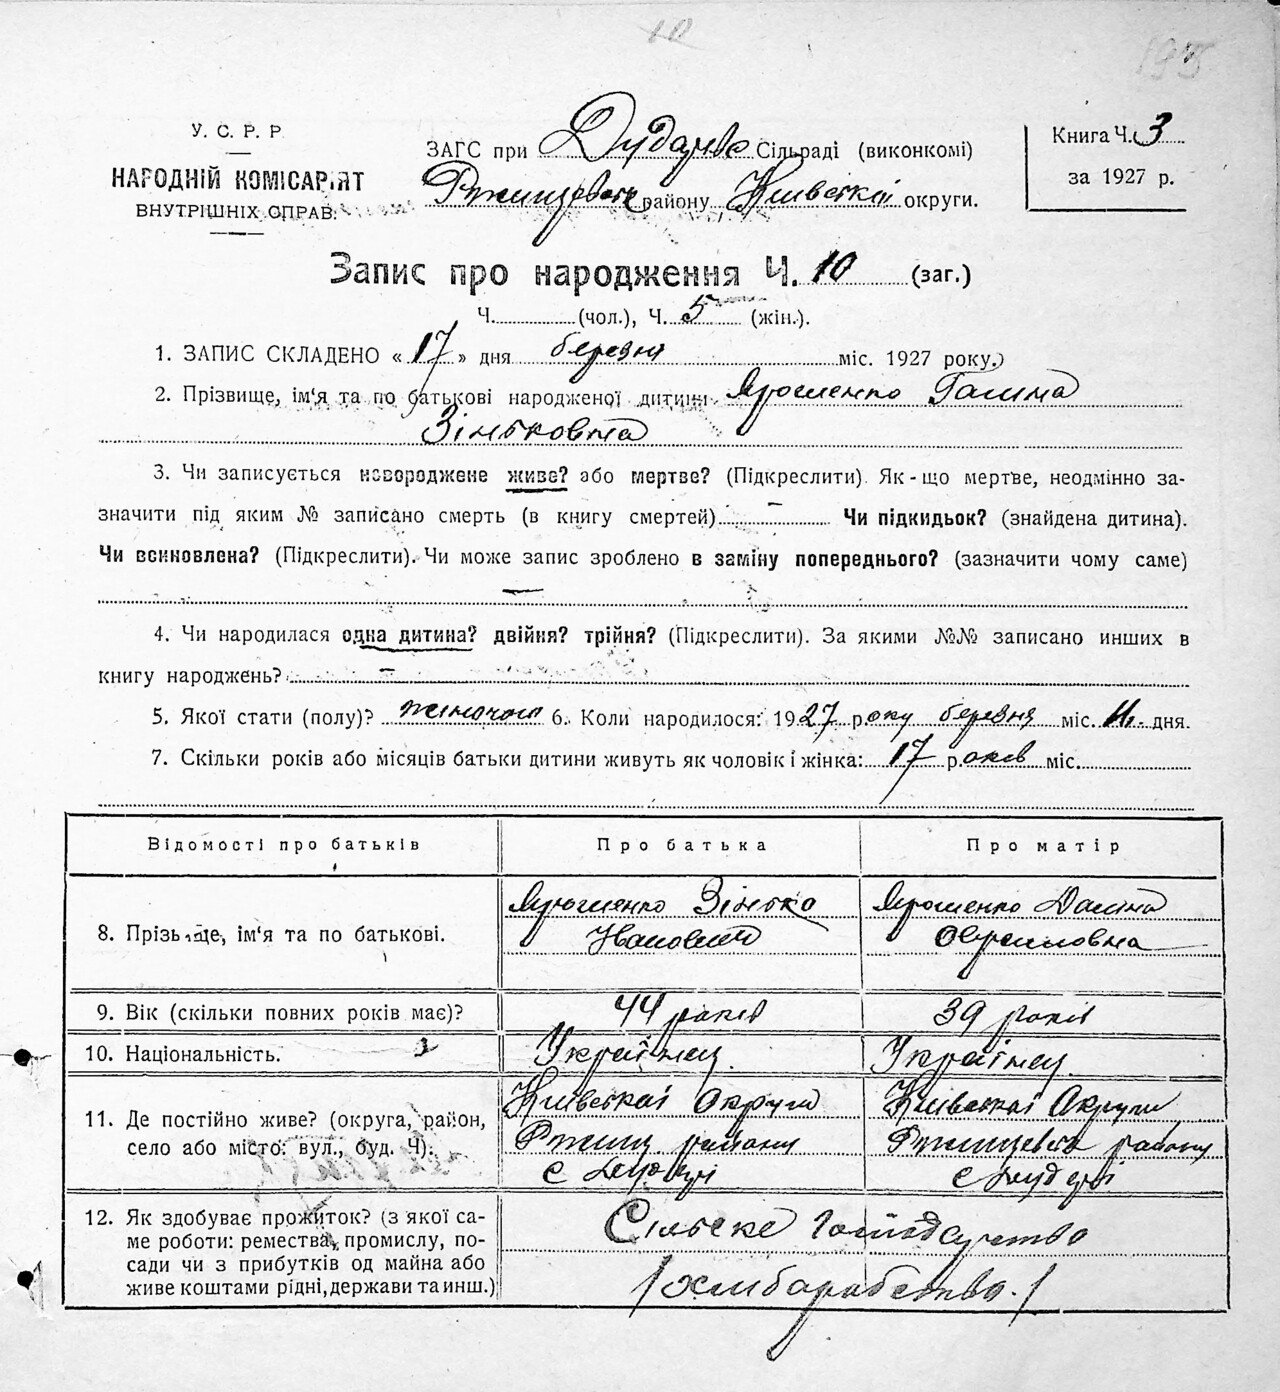 10
195
У. С. Р. Р
НАРОДНІЙ КОМІСАРІЯТ
ВНУТРІШНІХ СПРАВ.
ЗАГС при Дударів Сільраді (виконкомі)
Ржищевськ району Київської округи.
Книга Ч. 3
за 1927 р.
Запис про народження Ч. 10 (заг.)
Ч. (чол.), Ч. 5 (жін.).
1. ЗАПИС СКЛАДЕНО « 17 » дня березня міс. 1927 року.
2. Прізвище, ім'я та по батькові народженої дитини Ярошенко Галина
Зіньковна
3. Чи записується новороджене живе? або мертве? (Підкреслити). Як-що мертве, неодмінно за-
значити під яким № записано смерть (в книгу смертей) — Чи підкидьок? (знайдена дитина).
Чи всиновлена? (Підкреслити). Чи може запис зроблено в заміну попереднього? (зазначити чому саме)
—
4. Чи народилася одна дитина? двійня? трійня? (Підкреслити). За якими №№ записано инших в
книгу народжень? —
5. Якої стати (полу)? жіночої 6. Коли народилося: 1927 року березня міс. 11 дня.
7. Скільки років або місяців батьки дитини живуть як чоловік і жінка: 17 років міс.
Відомості про батьків Про батька Про матір
8. Прізвище, ім'я та по батькові. Ярошенко Зінько Ярошенко Галина
Іванович
9. Вік (скільки повних років має)? 44 років 39 років
10. Національність. Українец Українец
11. Де постійно живе? (округа, район, Київської Округи Київської Округи
село або місто: вул., буд. Ч). Ржищ району Ржищевськ району
с Дударі с Дударі
12. Як здобуває прожиток? (з якої са- Сільске Господарство
ме роботи: ремества, промислу, по-
сади чи з прибутків од майна або /хліборабство./
живе коштами рідні, держави та инш.)